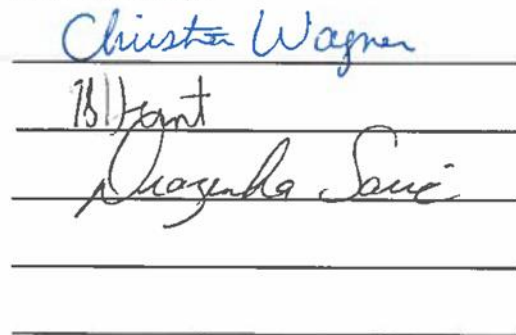 Christa Wagner
Drazenka Savic